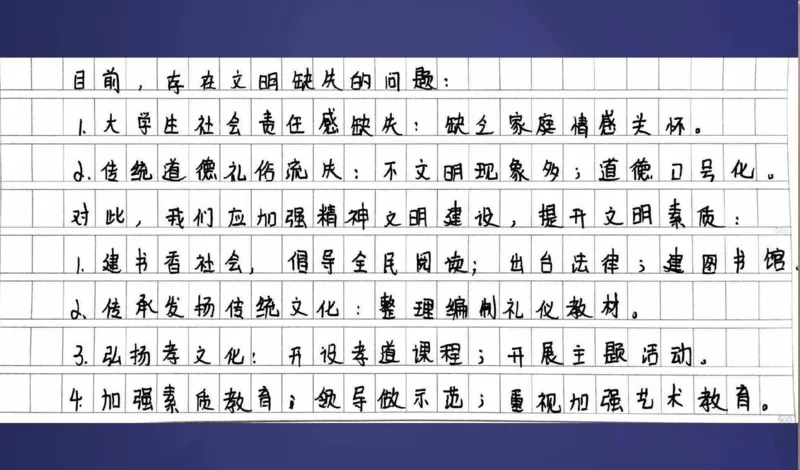 目前，存在文明缺失的问题：
1.大学生社会责任感缺失：缺乏家庭情感关怀。
2.传统道德礼俗流失：不文明现象多；道德口号化。
对此，我们应加强精神文明建设，提升文明素质：
1.建书香社会，倡导全民阅读；出台法律；建图书馆。
2.传承发扬传统文化：整理编制礼仪教材。
3.弘扬孝文化：开设孝道课程；开展主题活动。
4.加强素质教育；领导做示范；重视加强艺术教育。
500